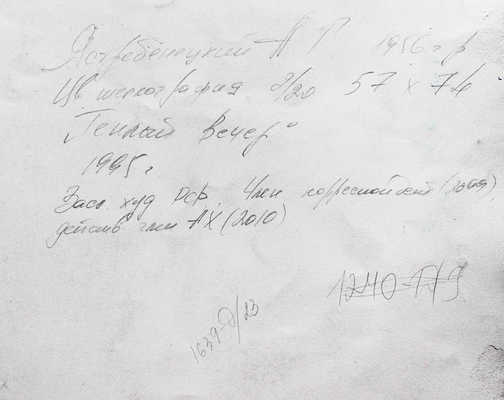 Ястребенецкий А Г 1956 г р
Цв шелкография 9/20 57 х 74
"Теплый вечер"
1995 г
Засл. худ РСФ. Член корреспондент (2009)
действ член АХ (2010)
1639-Д/23